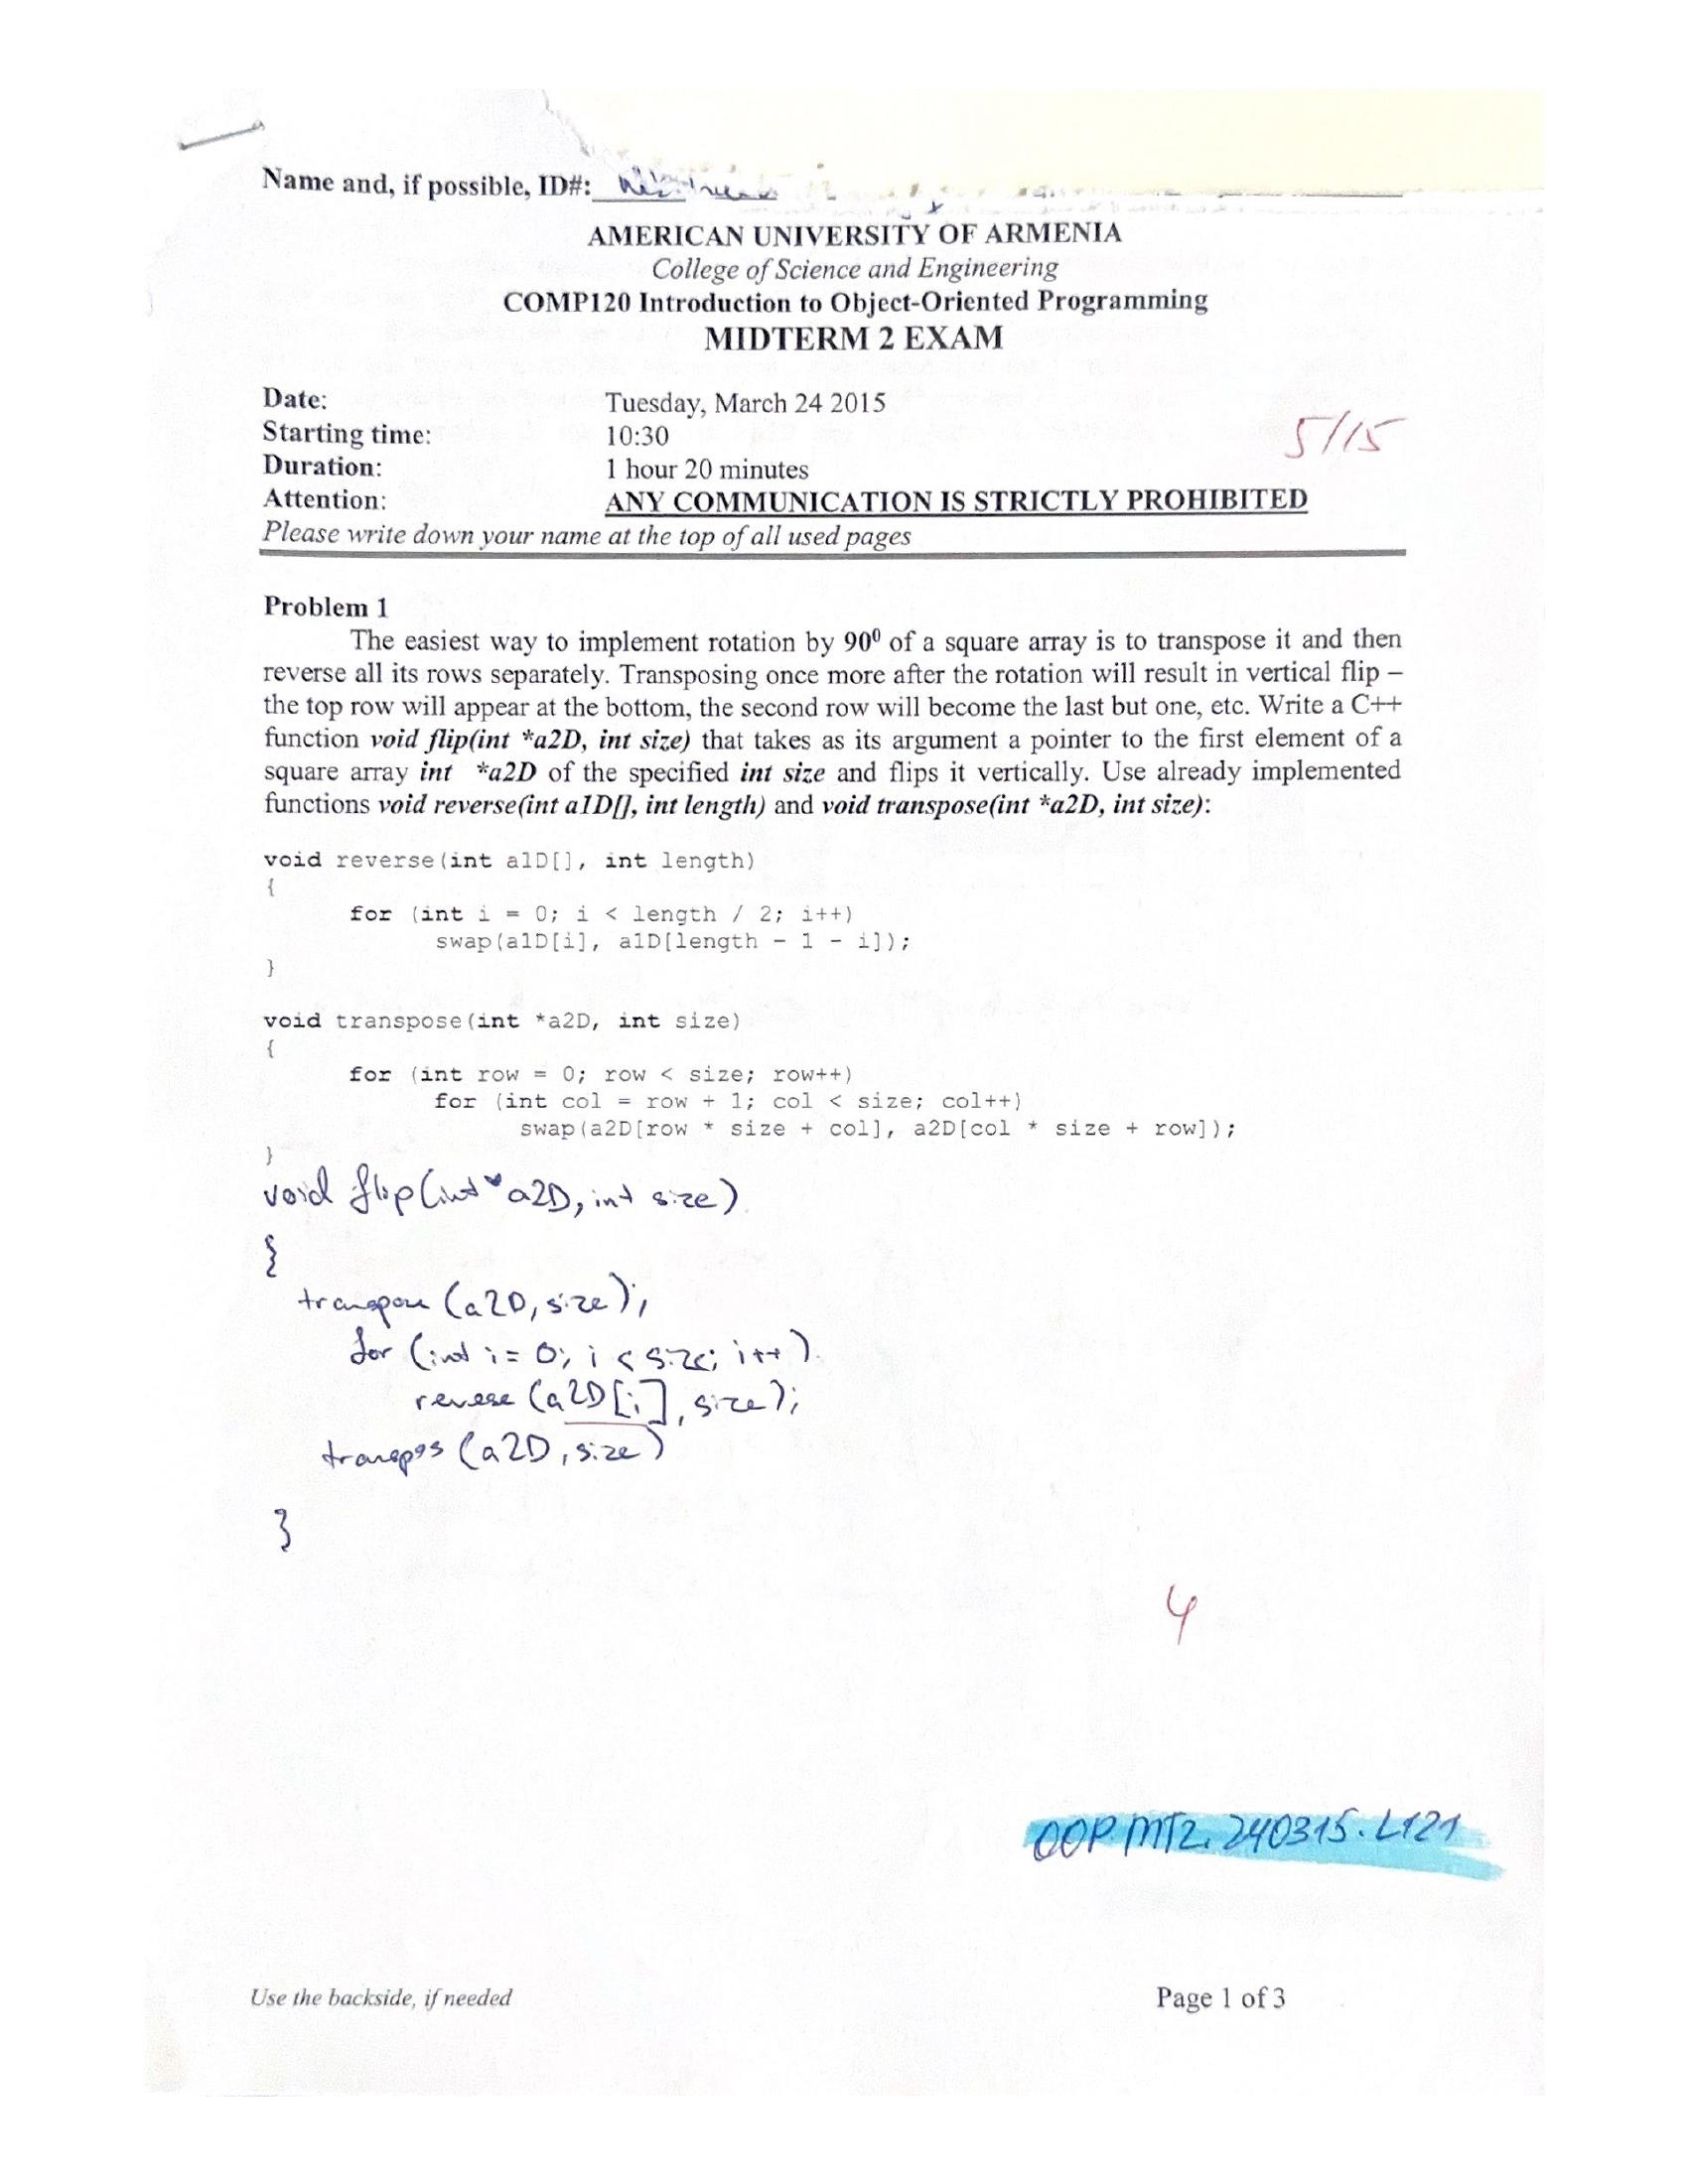 Name and, if possible, ID#:
AMERICAN UNIVERSITY OF ARMENIA
College of Science and Engineering
COMP120 Introduction to Object-Oriented Programming
MIDTERM 2 EXAM
Date: Tuesday, March 24 2015
5/15
Starting time: 10:30
Duration: 1 hour 20 minutes
Attention: ANY COMMUNICATION IS STRICTLY PROHIBITED
Please write down your name at the top of all used pages
Problem 1
The easiest way to implement rotation by 90⁰ of a square array is to transpose it and then
reverse all its rows separately. Transposing once more after the rotation will result in vertical flip –
the top row will appear at the bottom, the second row will become the last but one, etc. Write a C++
function void flip(int *a2D, int size) that takes as its argument a pointer to the first element of a
square array int *a2D of the specified int size and flips it vertically. Use already implemented
functions void reverse(int a1D[], int length) and void transpose(int *a2D, int size):
void reverse(int a1D[], int length)
{
for (int i = 0; i < length / 2; i++)
swap(a1D[i], a1D[length - 1 - i]);
}
void transpose(int *a2D, int size)
{
for (int row = 0; row < size; row++)
for (int col = row + 1; col < size; col++)
swap(a2D[row * size + col], a2D[col * size + row]);
}
void flip(int *a2D, int size)
{
transpose (a2D, size);
for (int i = 0; i < size; i++)
revese (a2D[i], size);
transpos (a2D, size)
}
4
OOP.MT2.240315.L121
Use the backside, if needed
Page 1 of 3